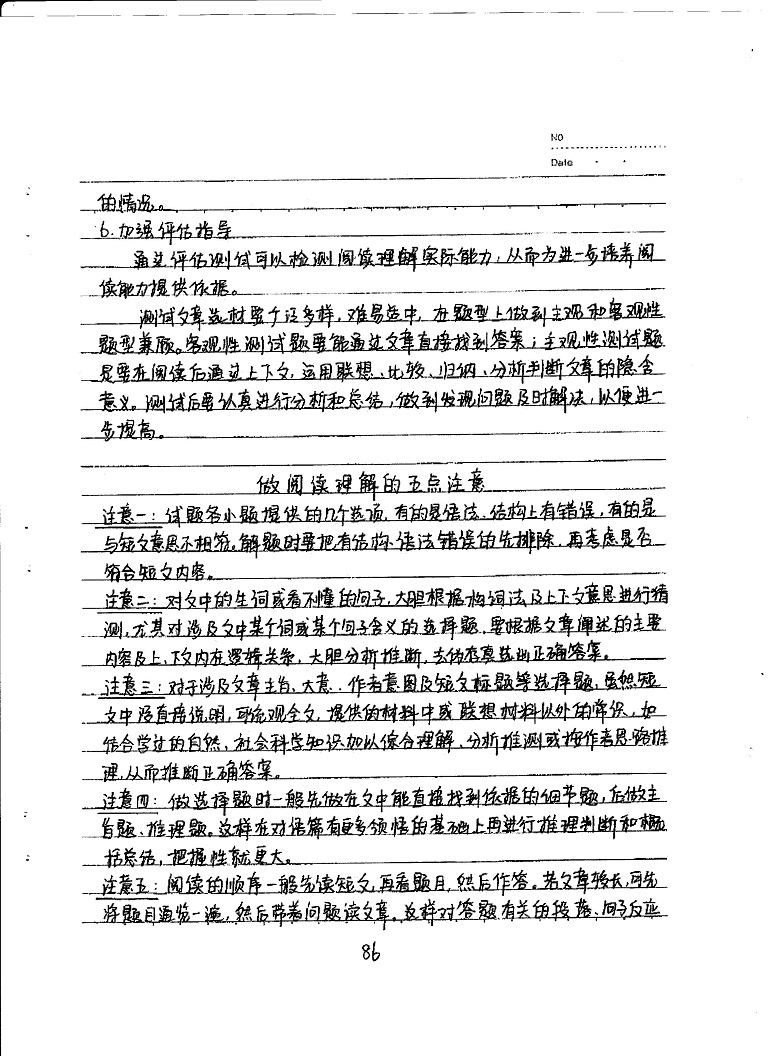 NO
Date
的情况。
6.加强评估指导
通过评估测试可以检测阅读理解实际能力,从而为进一步培养阅
读能力提供依据。
测试文章选材要广泛多样,难易适中,在题型上做到主观和客观性
题型兼顾。客观性测试题要能通过文章直接找到答案;主观性测试题
是要在阅读后通过上下文,运用联想、比较、归纳、分析判断文章的隐含
意义。测试后要认真进行分析和总结,做到发现问题及时解决,以便进一
步提高。
做阅读理解的五点注意
注意一:试题各小题提供的几个选项,有的是语法、结构上有错误,有的是
与短文意思不相符。解题时要把有结构、语法错误的先排除,再考虑是否
符合短文内容。
注意二:对文中的生词或看不懂的句子,大胆根据构词法及上下文意思进行猜
测,尤其对涉及文中某个词或某个句子含义的选择题,要根据文章阐述的主要
内容及上、下文内在逻辑关系,大胆分析推断,去伪存真选出正确答案。
注意三:对于涉及文章主旨、大意、作者意图及短文标题等选择题,虽然短
文中没直接说明,可综观全文,提供的材料中或联想材料以外的常识,如
结合学过的自然、社会科学知识加以综合理解、分析推测或按作者思路推
理,从而推断正确答案。
注意四:做选择题时一般先做在文中能直接找到依据的细节题,后做主
旨题、推理题。这样在对语篇有更多领悟的基础上再进行推理判断和概
括总结,把握性就更大。
注意五:阅读的顺序一般先读短文,再看题目,然后作答。若文章较长,可先
将题目通览一遍,然后带着问题读文章。这样对答题有关的段落、句子反应
86